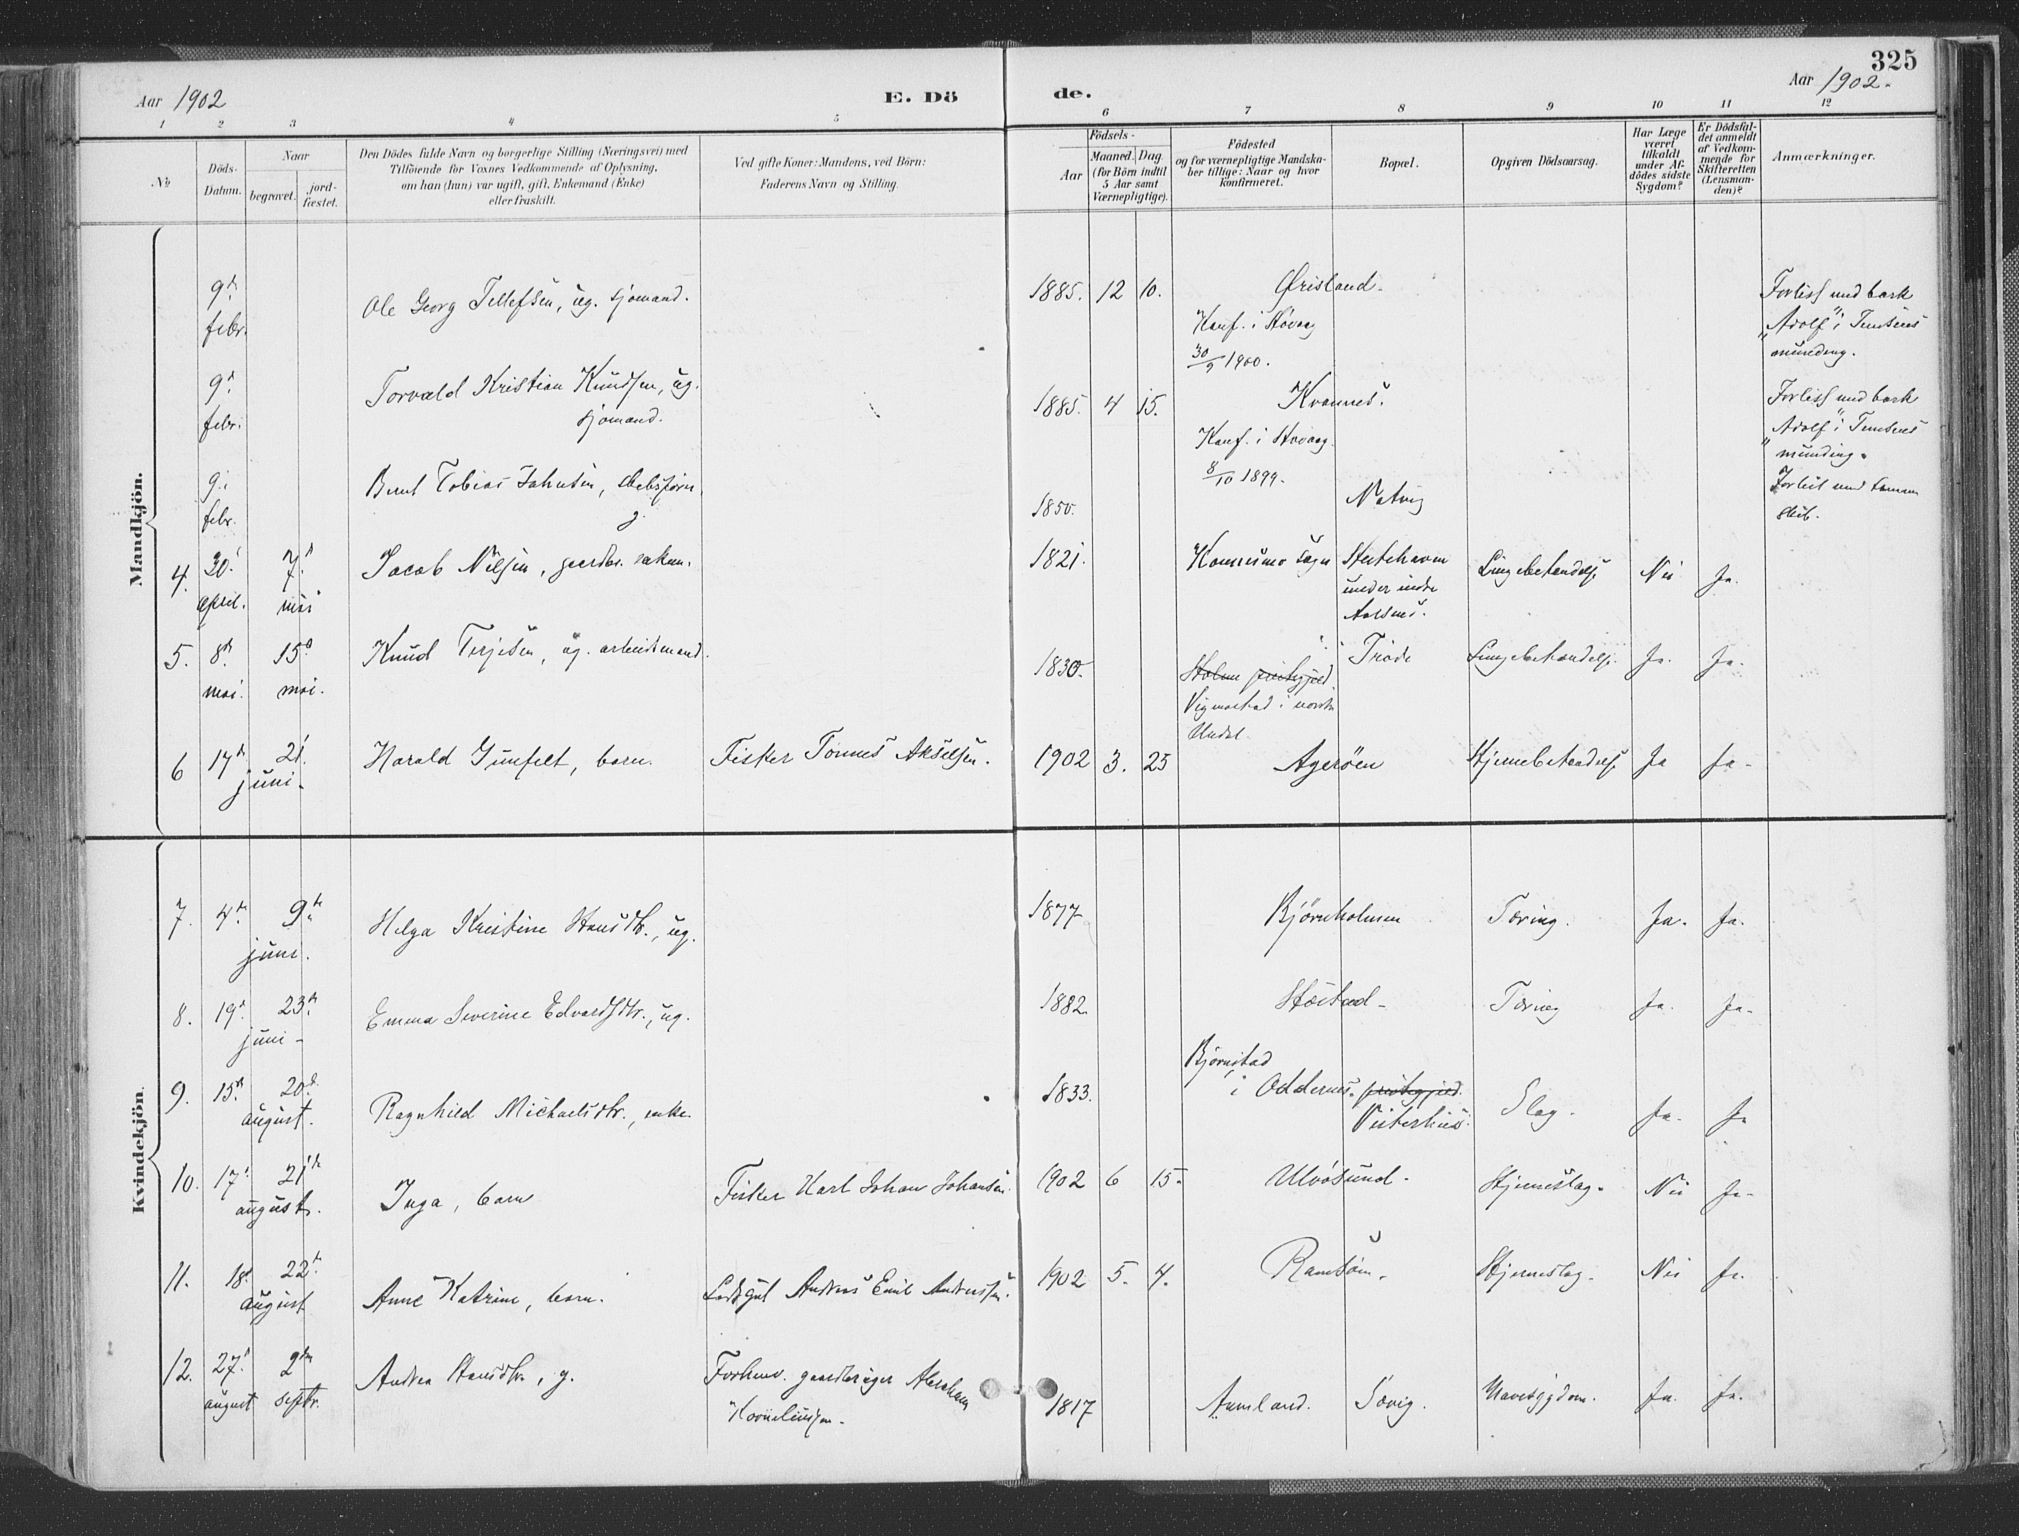 325
Aar 1902
E. Dö
de.
Aar 1902.
1 2 3 4 5
6 7 8 9 10 11 12
No
Döds-
Datum.
Naar
begravet.
jord-
fæstet.
Den Dödes fulde Navn og borgerlige Stilling (Næringsvei) med
Tilföiende for Voxnes Vedkommende af Oplysning,
om han (hun) var ugift, gift, Enkemand (Enke)
eller fraskilt.
Ved gifte Koner: Mandens, ved Börn:
Faderens Navn og Stilling.
Födsels-
Aar
Maaned. Dag
(for Börn indtil
5 Aar samt
Værnepligtige).
Födested
og for værnepligtige Mandska-
ber tillige: Naar og hvor
konfirmeret.
Bopæl.
Opgiven Dödsaarsag.
Har Læge
været
tilkaldt
under Af-
dödes sidste
Sygdom?
Er Dödsfal-
det anmeldt
af Vedkom-
mende for
Skifteretten
(Lensman-
den)?
Anmærkninger.
Mandkjön.
9d febr. Ole Georg Tellefsen, ug. sjömand. 1885. 12 10. Ørisland.
Konf. i Høvaag
30/9 1900.
Forlist med bark
"Adolf" i Temsens
munding.
9d febr. Torvald Kristian Knudsen, ug.
sjömand. 1885. 4 15. Kvannes.
Konf. i Høvaag
8/10 1899.
Forlist med bark
"Adolf" i Temsens
munding.
9d febr. Bernt Tobias Johnsen, skibsförer,
g. 1850. Natvig
Forlist med samme
skib.
4. 30. april. 7. mai Jacob Nilsen, gaardbr. enkem. 1821. Konnesmo sogn
under indre
Aalsnes. Lungebetændelse Nei Ja.
5. 8d mai. 15d mai. Knud Terjesen, ug. arbeidsmand. 1830.
Vigmostad i nordre
Undal. Trøde Lungebetændelse Ja. Ja.
6 17d 21. juni. Harald Gunfelt, barn. Fisker Tønnes Akselsen. 1902 3. 25 Agerøen Hjernebetændelse Ja Ja.
Kvindekjön.
7. 4d 9d juni. Helga Kristine Hansdtr., ug. 1877 Bjørnholmen Tæring. Ja. Ja.
8. 19d 23d juni. Emma Severine Edvardsdtr., ug. 1882. Tæring Ja. Ja.
9. 15d 20d august. Ragnhild Michaelsdtr., enke. 1833. Bjørnstad
i Oddernes. Slag. Ja. Ja
10. 17d 21d august. Inga, barn Fisker Karl Johan Johansen. 1902 6 15. Ulvøsund. Hjerneslag. Nei Ja.
11. 18d 22d august Anne Katrine, barn. Lodsgut Andreas Emil Andreassen. 1902 5. 4. Ramsøen. Hjerneslag. Nei Ja.
12. 27d august 2den septbr. Andrea Hansdtr., g. Forhenv. gaardbruger Abraham
Korneliussen. 1817 Aamland. Sævig. Ja. Ja.